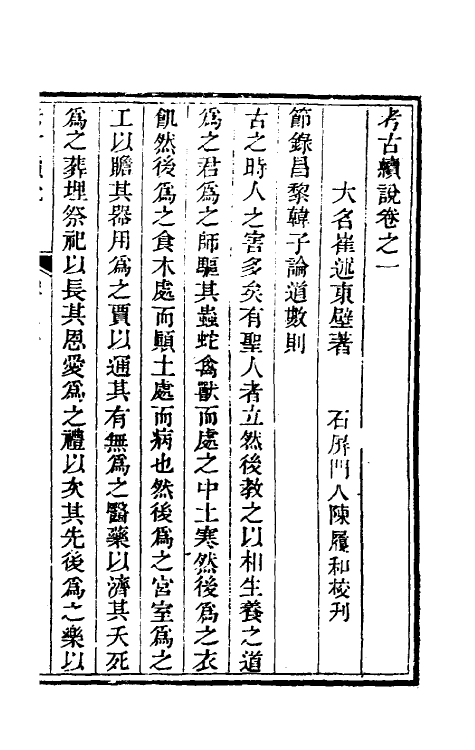 考古續說卷之一
大名崔述東壁著　石屏門人陳履和校刊
節錄昌黎韓子論道數則
古之時人之害多矣有聖人者立然後教之以相生養之道
爲之君爲之師驅其蟲蛇禽獸而處之中土寒然後爲之衣
飢然後爲之食木處而顛土處而病也然後爲之宮室爲之
工以贍其器用爲之賈以通其有無爲之醫藥以濟其夭死
爲之葬埋祭祀以長其恩愛爲之禮以次其先後爲之樂以